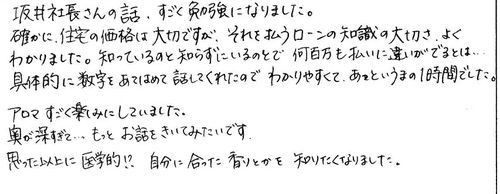 坂井社長さんの話、すごく勉強になりました。
確かに、住宅の価格は大切ですが、それを払うローンの知識の大切さ、よく
わかりました。知っているのと知らずにいるのとで何百万も払いに違いがでるとは…
具体的に数字をあてはめて話してくれたのでわかりやすくて、あっというまの1時間でした。
アロマすごく楽しみにしていました。
奥が深すぎて…もっとお話をきいてみたいです。
思った以上に医学的!? 自分に合った香りとかを知りたくなりました。